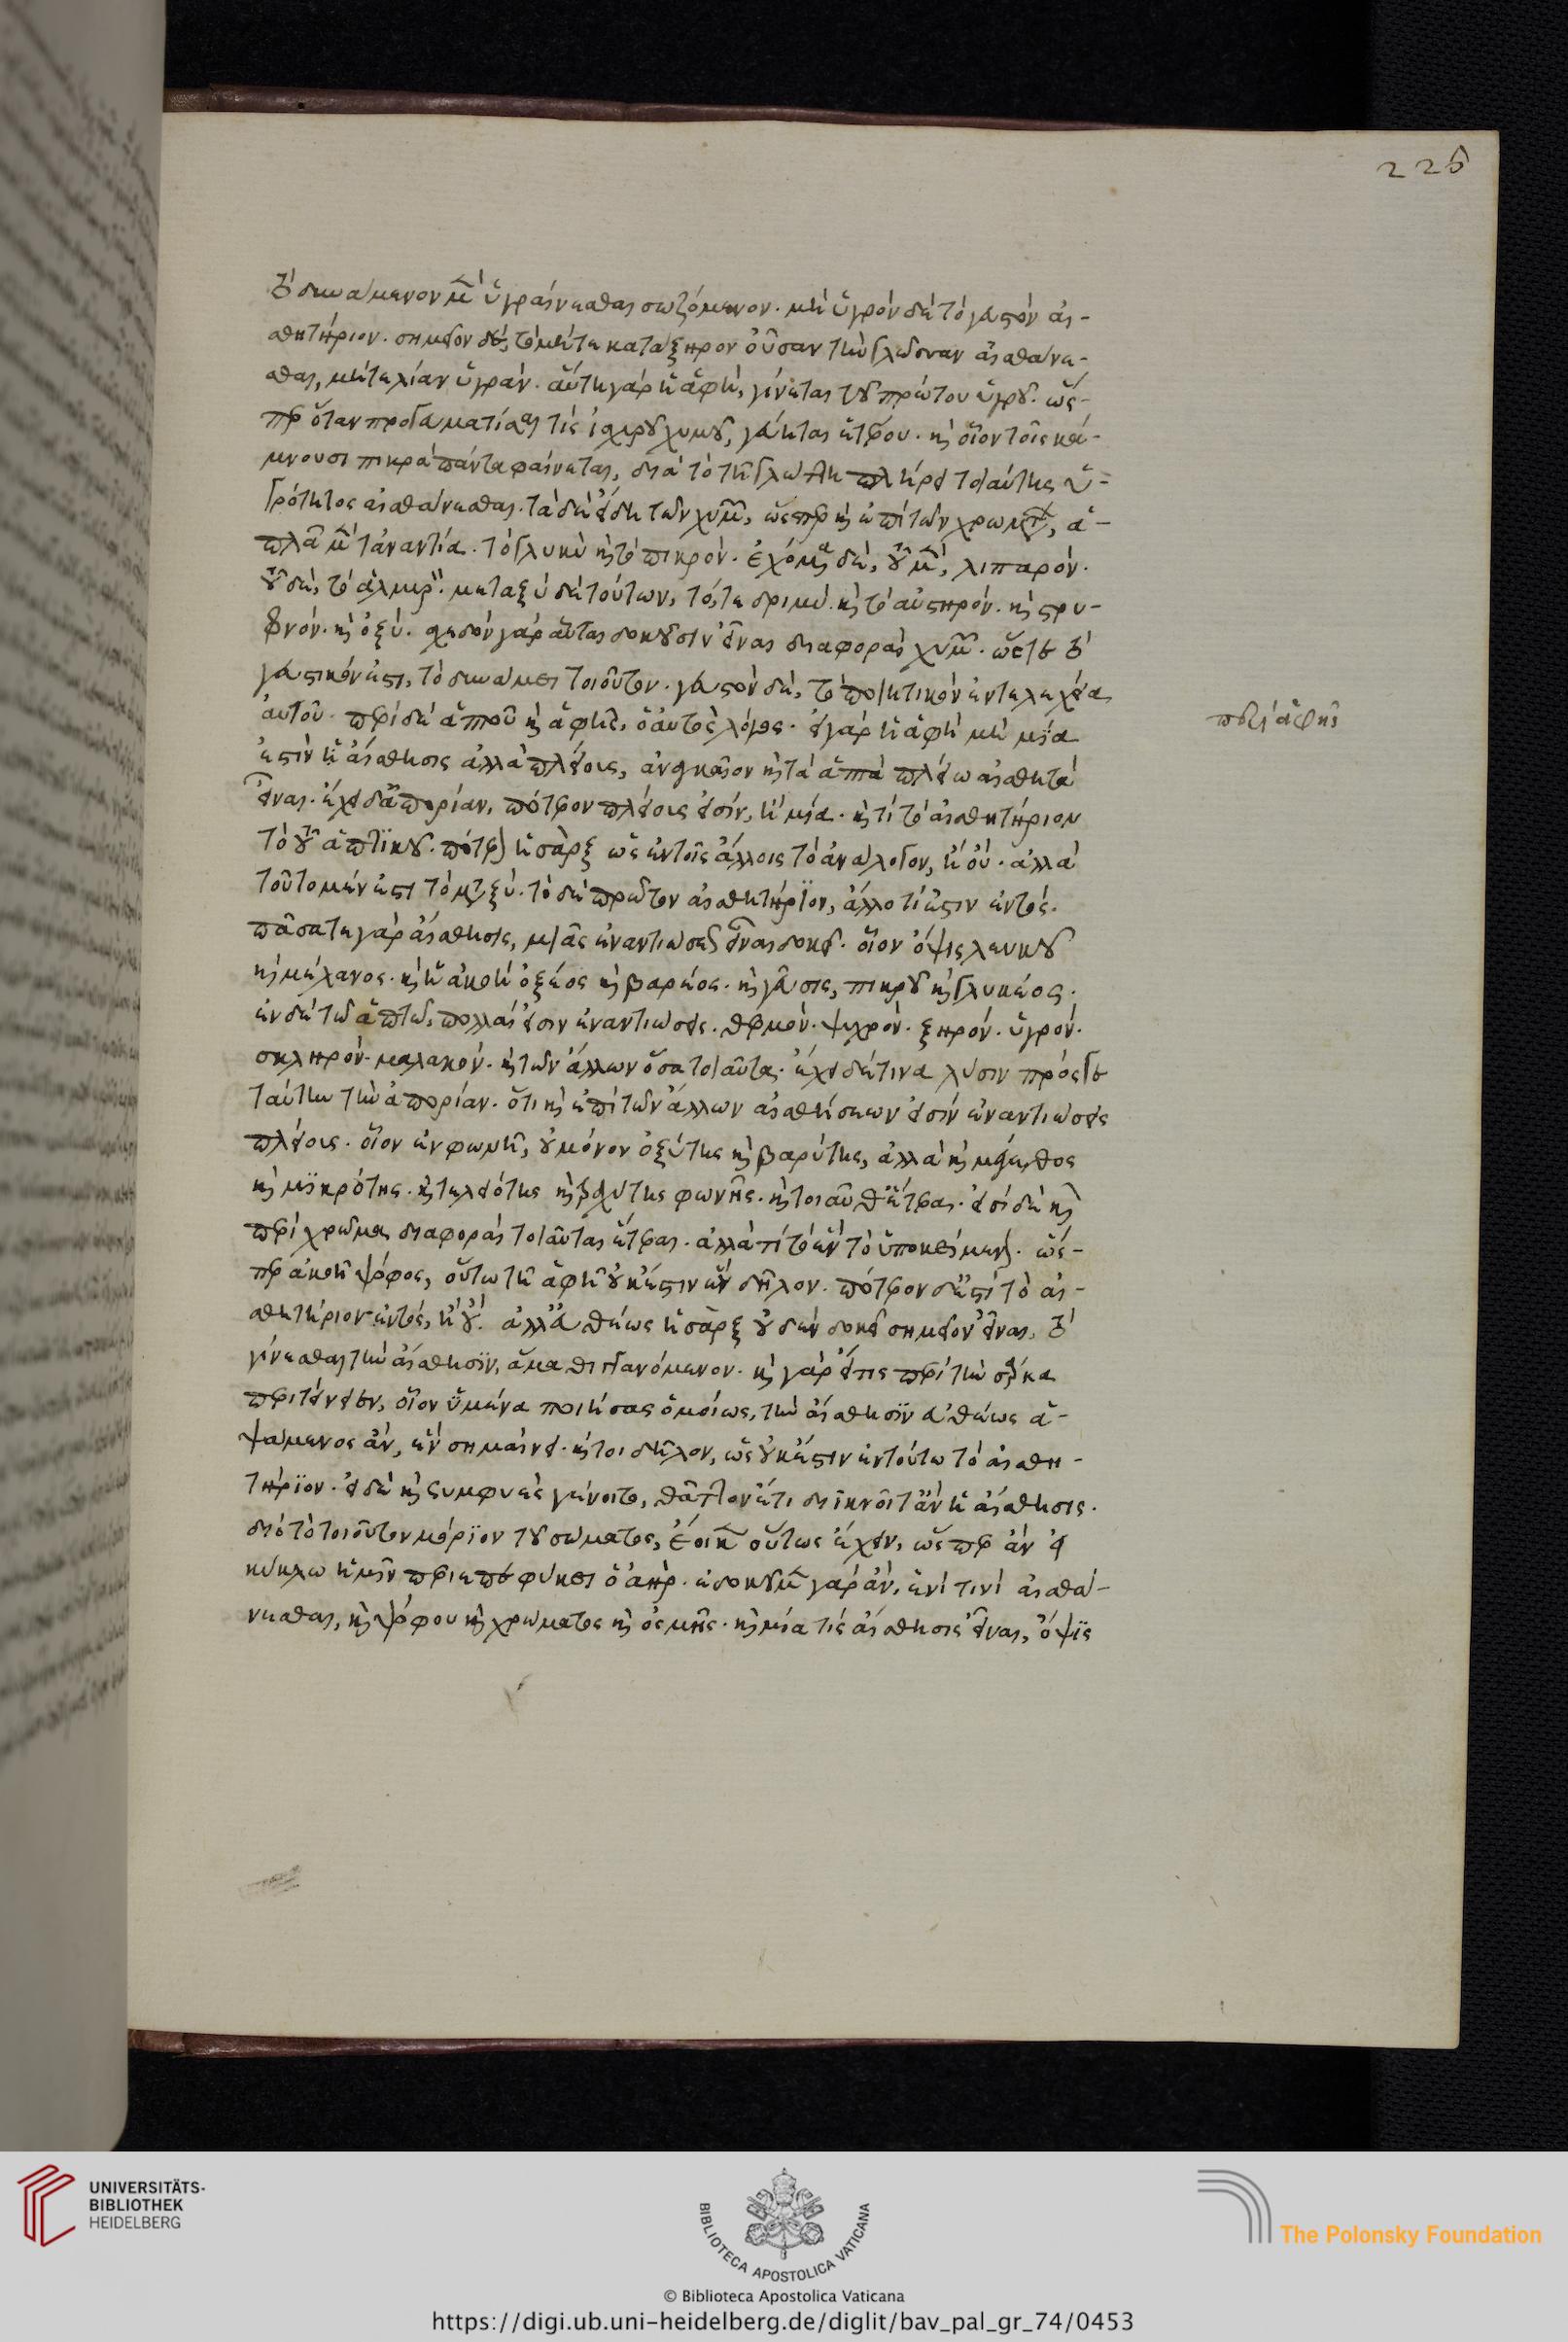 τὸ δυνάμενον μὲν ὑγραίνεσθαι σωζόμενον. μὴ ὑγρὸν δὲ τὸ γευστὸν αἰ-
σθητήριον. σημεῖον δὲ, τὸ μήτε κατάξηρον οὖσαν τὴν γλῶσσαν αἰσθάνε-
σθαι, μήτε λίαν ὑγράν. αὕτη γὰρ ἡ ἁφὴ, γίνεται τοῦ πρώτου ὑγροῦ. ὥσ-
περ ὅταν προγευματίσας τὶς ἰσχυροῦ χυμοῦ, γεύηται ἑτέρου. καὶ οἷον τοῖς κά-
μνουσι πικρὰ πάντα φαίνεται, διὰ τὸ τῇ γλώττῃ πλήρει τοιαύτης ὑ-
γρότητος αἰσθάνεσθαι. τὰ δὲ εἴδη τῶν χυμῶν, ὥσπερ καὶ ἐπὶ τῶν χρωμάτων, ἁ-
πλᾶ μὲν τἀναντία. τὸ γλυκὺ καὶ τὸ πικρὸν. ἐχόμενα δὲ, τοῦ μὲν, λιπαρόν.
τοῦ δὲ, τὸ ἁλμυρόν. μεταξὺ δὲ τούτων, τό, τε δριμὺ. καὶ τὸ αὐστηρόν. καὶ στρυ-
φνόν. καὶ ὀξύ. σχεδὸν γὰρ αὗται δοκοῦσιν εἶναι διαφοραὶ χυμῶν. ὥστε τὸ
γευστικόν ἐστι, τὸ δυνάμει τοιοῦτον. γευστὸν δὲ, τὸ ποιητικὸν ἐντελεχεία
αὐτοῦ. περὶ δὲ ἁπτοῦ καὶ ἁφῆς, ὁ αὐτὸς λόγος. εἰ γὰρ ἡ ἁφὴ μὴ μία
ἐστὶν ἡ αἴσθησις ἀλλὰ πλείους, ἀναγκαῖον καὶ τὰ ἁπτὰ πλείω αἰσθητὰ
εἶναι. ἔχει δ' ἀπορίαν, πότερον πλείους εἰσίν, ἢ μία. καὶ τί τὸ αἰσθητήριον
τὸ τοῦ ἁπτικοῦ. πότερον ἡ σὰρξ ὡς ἐν τοῖς ἄλλοις τὸ ἀνάλογον, ἢ οὔ. ἀλλὰ
τοῦτο μέν ἐστι τὸ μεταξύ. τὸ δὲ πρῶτον αἰσθητήριον, ἄλλο τί ἐστιν ἐντός.
πᾶσα τε γὰρ αἴσθησις, μιᾶς ἐναντιώσεως εἶναι δοκεῖ. οἷον ὄψις λευκοῦ
καὶ μέλανος. καὶ ἡ ἀκοὴ ὀξέος καὶ βαρέος. καὶ γεῦσις, πικροῦ καὶ γλυκέος.
ἐν δὲ τῶ ἁπτῶ, πολλαὶ εἰσὶν ἐναντιώσεις. θερμὸν. ψυχρὸν. ξηρόν. ὑγρόν.
σκληρὸν. μαλακόν. καὶ τῶν ἄλλων ὅσα τοιαῦτα. ἔχει δέ τινα λύσιν πρός γε
ταύτην τὴν ἀπορίαν. ὅτι καὶ ἐπὶ τῶν ἄλλων αἰσθήσεων εἰσὶν ἐναντιώσεις
πλείους. οἷον ἐν φωνῇ, οὐ μόνον ὀξύτης καὶ βαρύτης, ἀλλὰ καὶ μέγεθος
καὶ μικρότης. καὶ λειότης καὶ τραχύτης φωνῆς. καὶ τοιαῦθ' ἕτερα. εἰσὶ δὲ καὶ
περὶ χρῶμα διαφοραὶ τοιαῦται ἕτεραι. ἀλλὰ τί τὸ ἓν τὸ ὑποκείμενον. ὥσ-
περ ἀκοῇ ψόφος, οὕτω τῇ ἁφῇ οὐκ ἔστιν ἓν δῆλον. πότερον δ' ἐστὶ τὸ αἰ-
σθητήριον ἐντός, ἢ οὔ. ἀλλ' εὐθέως ἡ σὰρξ οὐδὲν δοκεῖ σημεῖον εἶναι, τὸ
γίνεσθαι τὴν αἴσθησιν, ἅμα θιγγανόμενον. καὶ γὰρ εἴ τις περὶ τὴν σάρκα
περιτείνειεν, οἷον ὑμένα ποιήσας ὁμοίως, τὴν αἴσθησιν εὐθέως ἁ-
ψάμενος ἂν, ἐν σημαίνει. καίτοι δῆλον, ὡς οὐκ ἔστιν ἐν τούτω τὸ αἰσθη-
τήριον. εἰ δὲ καὶ συμφυὲς γένοιτο, θᾶττον ἔτι διϊκνοῖτ' ἂν ἡ αἴσθησις.
διὸ τὸ τοιοῦτον μόριον τοῦ σώματος, ἔοικεν οὕτως ἔχειν, ὥσπερ ἂν εἰ
κύκλω ἡμῖν περιεπεφύκει ὁ ἀήρ. ἐδοκοῦμεν γὰρ ἂν, ἑνί τινι αἰσθά-
νεσθαι, καὶ ψόφου καὶ χρώματος καὶ ὀσμῆς. καὶ μία τὶς αἴσθησις εἶναι, ὄψις
περὶ ἁφῆς
225
UNIVERSITÄTS-
BIBLIOTHEK
HEIDELBERG
BIBLIOTECA APOSTOLICA VATICANA
The Polonsky Foundation
© Biblioteca Apostolica Vaticana
https://digi.ub.uni-heidelberg.de/diglit/bav_pal_gr_74/0453